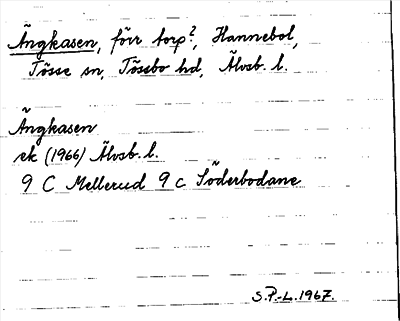 Ängkasen, förr torp?, Hannebol,
Tösse sn, Tössbo hd, Älvsb. l.
Ängkasen
ek (1966) Älvsb. l.
9 C Mellerud 9 c Söderbodane
S.P.-L. 1967.